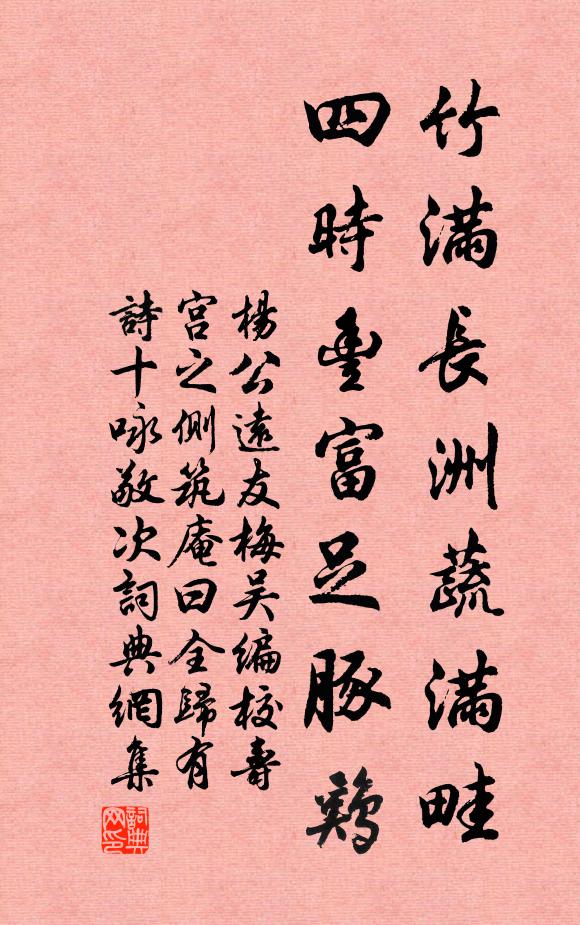 竹滿長洲蔬滿畦
四時豐富足豚鷄
楊公遠友梅吴編校壽
宫之側筑庵曰全歸有
詩十咏敬次詞典網集
詞典网印